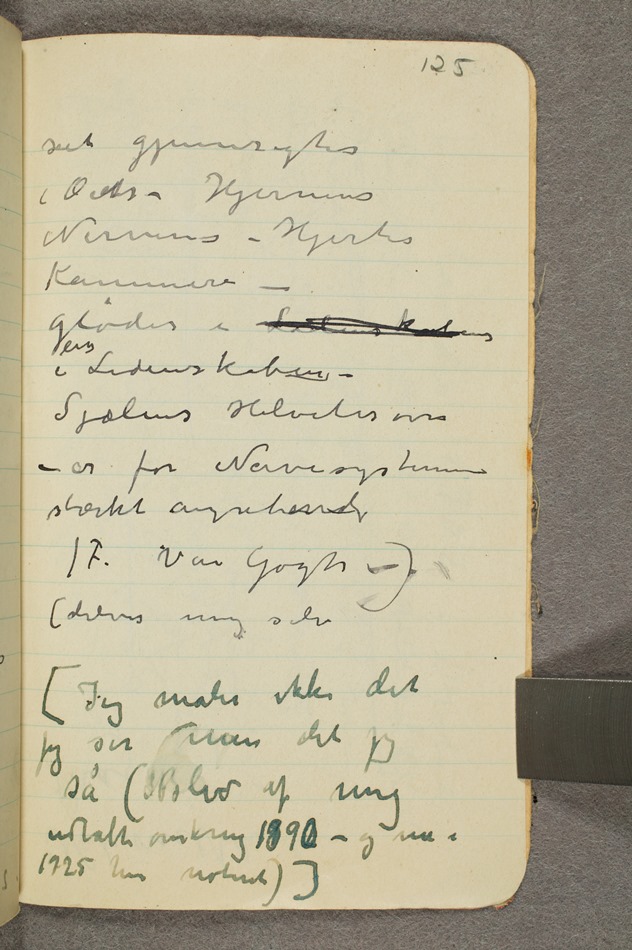 125
set gjennem øiets
i Øiets – Hjernens
Nervens – Hjertes
Kammere –
glødes i Lidenskabens
ens
i Lidenskaben –
Sjælens Helvetesovn
– er for Nervesystemene
stærkt angribende
(F. Van Gogh –)
(delvis mig selv
[Jeg maler ikke det
jeg ser men det jeg
så (Blev af mig
udtalt omkring 1890 – og nu i
1925 her noteret)]